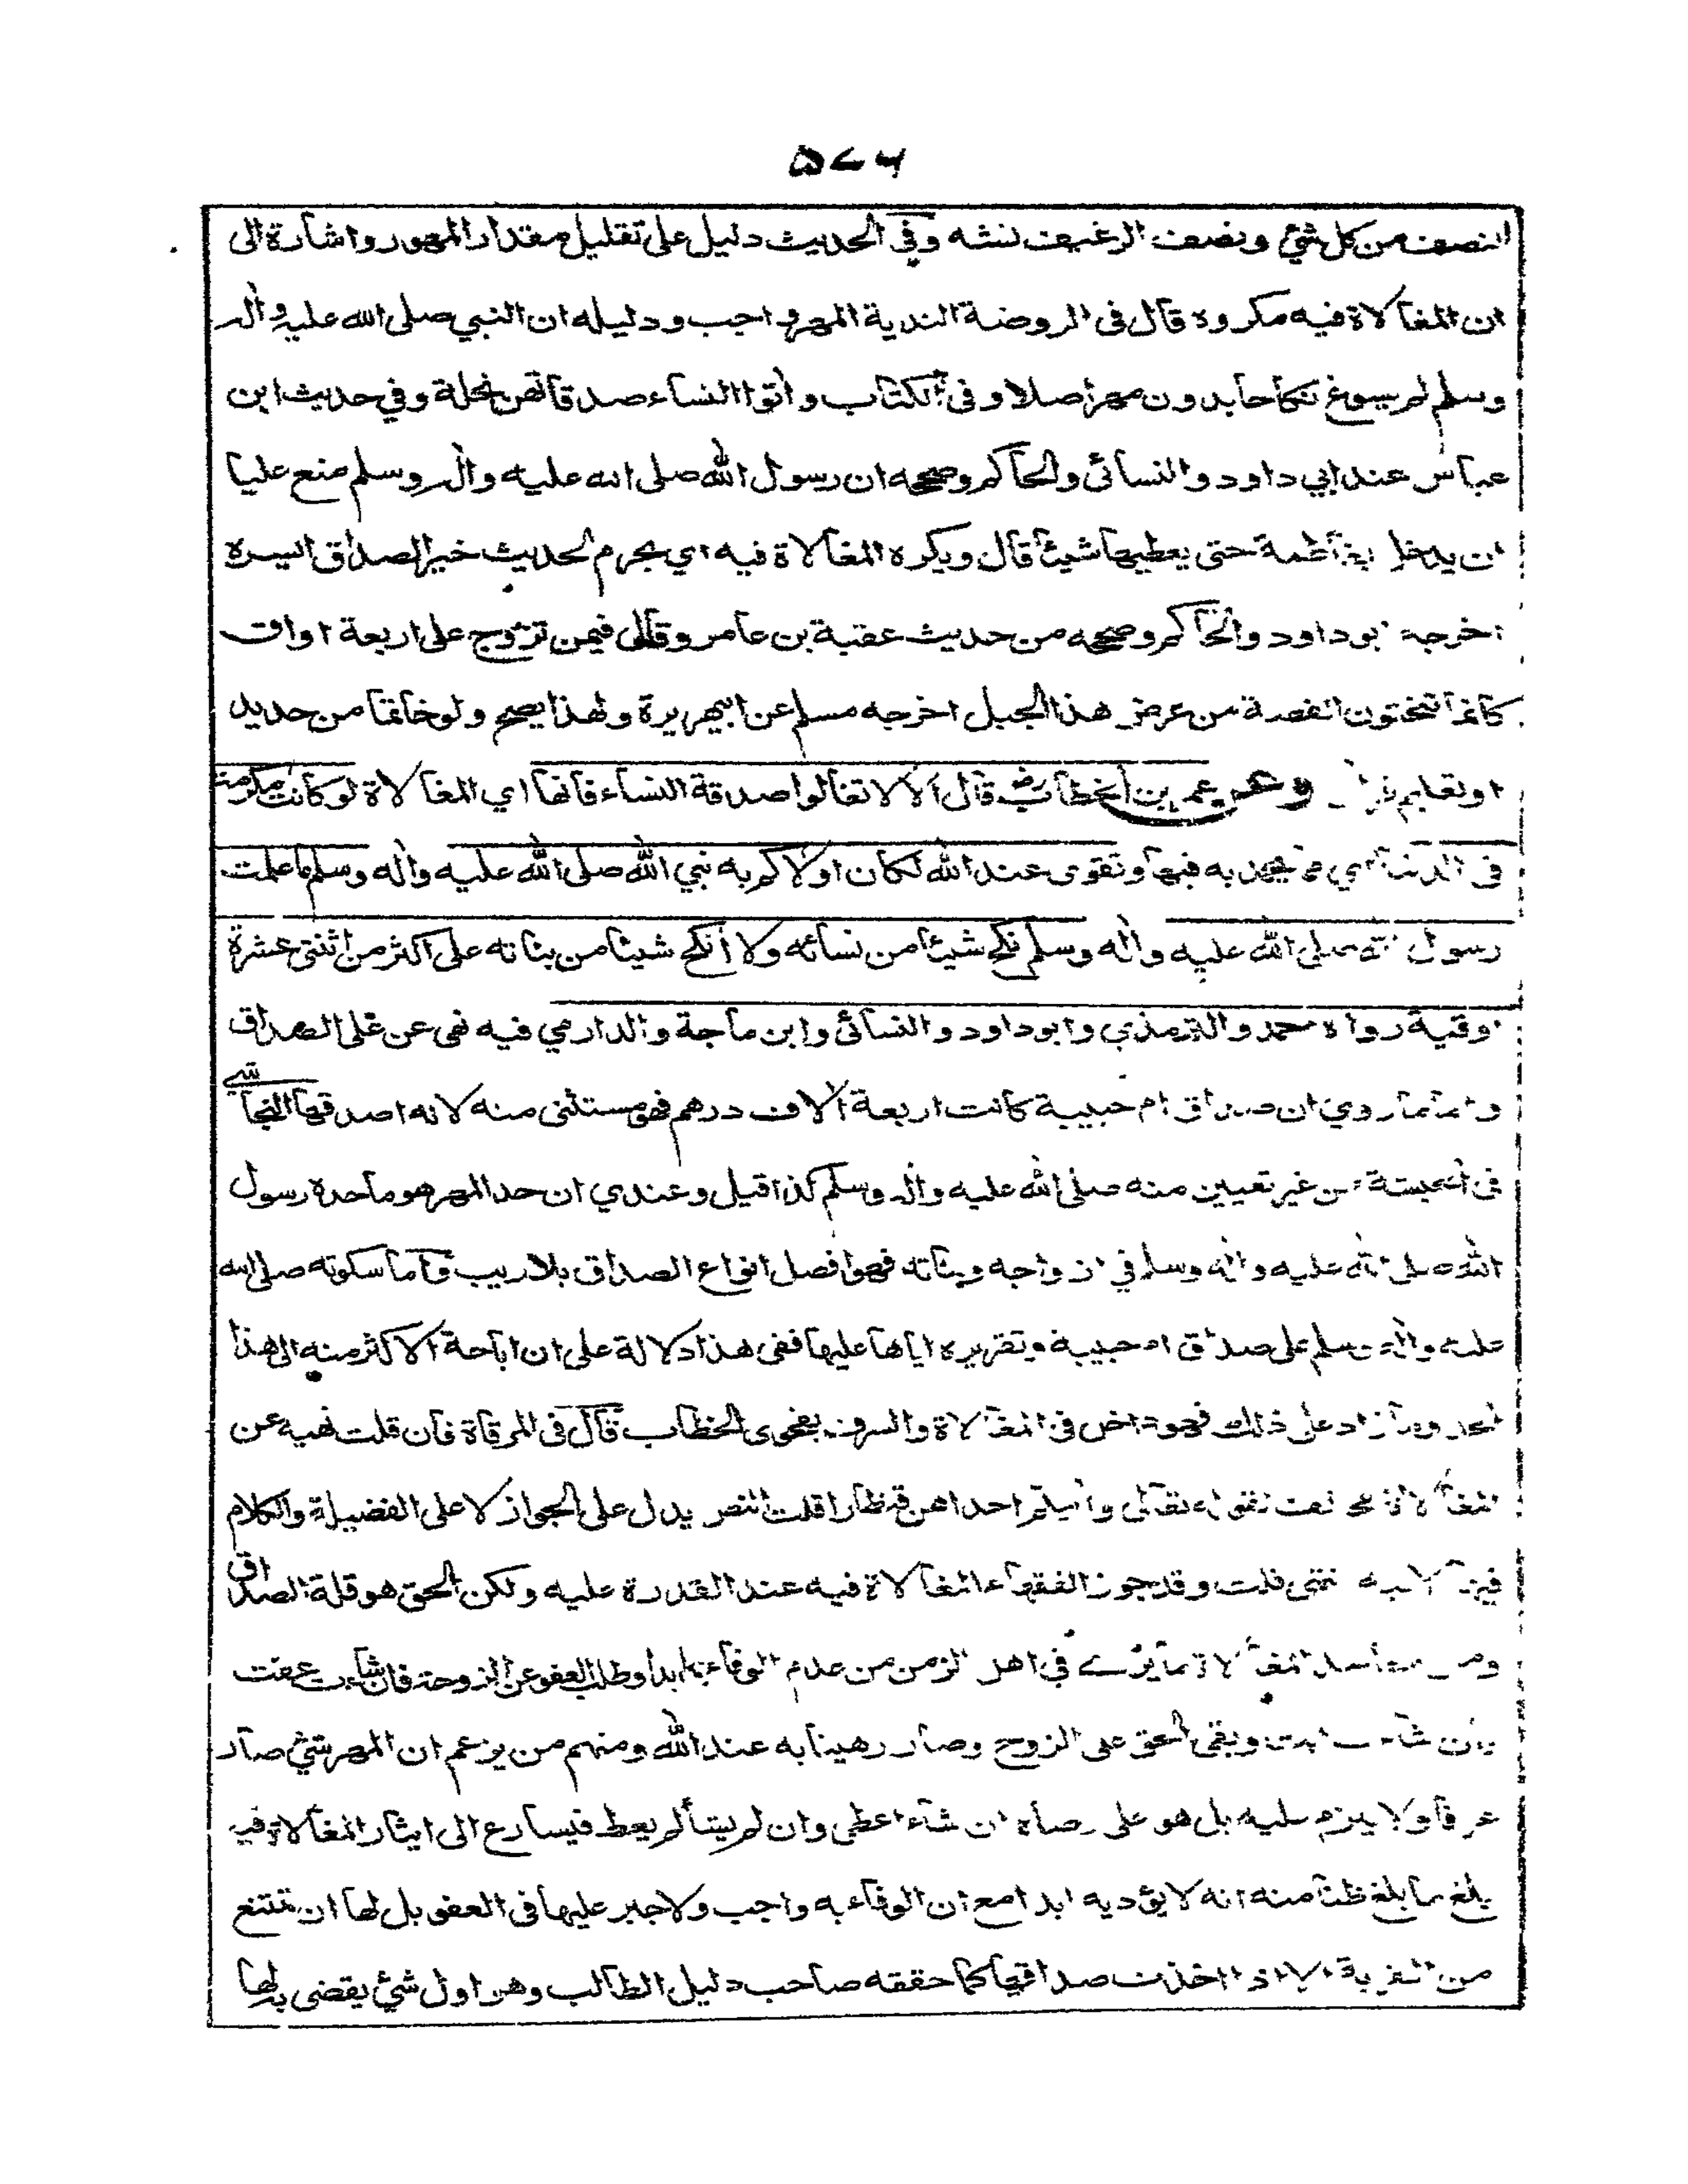 ۵۷۶
النصف من كل شئ ونصف الرغيف نشه وفي الحديث دليل على تقليل مقدار المهور واشارة الى
ان المغالاة فيه مكروه قال فى الروضة الندية المهر واجب ودليله ان النبي صلى الله عليه واله
وسلم لم يسوغ نكاحا بدون مهر اصلا وفى الكتاب وأتوا النساء صدقاتهن نحلة وفي حديث ابن
عباس عند ابي داود والنسائى والحاكم وصححه ان رسول الله صلى الله عليه واله وسلم منع عليا
ان يدخل بفاطمة حتى يعطيها شيئا قال ويكره المغالاة فيه اي يحرم لحديث خير الصداق ايسره
اخرجه ابو داود والحاكم وصححه من حديث عقبة بن عامر وقال فيمن تزوج على اربعة اواق
كانما تنحتون الفضة من عرض هذا الجبل اخرجه مسلم عن ابيهريرة ولهذا يصح ولو خاتما من حديد
او تعليم قرأن وعن عمر بن الخطاب رض قال الا لا تغالوا صدقة النساء فانها اي المغالاة لو كانت مكرمة
فى الدنيا اي مما يحمد به فيها وتقوى عند الله لكان اولاكم به نبي الله صلى الله عليه وأله وسلم ما علمت
رسول الله صلى الله عليه وأله وسلم نكح شيئا من نسائه ولا أنكح شيئا من بناته على اكثر من اثنتى عشرة
اوقية رواه احمد والترمذي وابو داود والنسائى وابن ماجة والدارمي فيه نهى عن غلى الصداق
واما ما روي ان صداق ام حبيبة كانت اربعة ألاف درهم فهو مستثنى منه لانه اصدقها النجاشے
فى الحبشة من غير تعيين منه صلى الله عليه واله وسلم كذا قيل وعندي ان حد المهر هو ما حده رسول
الله صلى الله عليه واله وسلم في ازواجه وبناته فهو افضل انواع الصداق بلا ريب وأما سكوته صلى الله
عليه واله وسلم على صداق ام حبيبة وتقريره اياها عليها ففى هذا دلالة على ان اباحة الاكثر منه الى هذا
الحد وما زاد على ذلك فهو داخل فى المغالاة والسرف بفحوى الخطاب قال فى المرقاة فان قلت نهيه عن
المغالاة مخالف لقوله تعالى وأتيتم احداهن قنطارا قلت النص يدل على الجواز لا على الفضيلة والكلام
فيها لا فيه انتهى قلت وقد جوز الفقهاء المغالاة فيه عند القدرة عليه ولكن الحق هو قلة الصداق
ومن مفاسد المغالاة ما يرے في اهل الزمن من عدم الوفاء بها ابدا وطلب العفو عن الزوجة فان شاءت عفت
وان شاءت ابت وبقى الحق على الزوج وصار رهينا به عند الله ومنهم من يزعم ان المهر شئ صار
عرفا ولا يلزم عليه بل هو على رضاه ان شاء اعطى وان لم يشأ لم يعط فيسارع الى ايثار المغالاة فيه
بلغ ما بلغ ظنا منه انه لا يؤديه ابدا مع ان الوفاء به واجب ولا جبر عليها فى العفو بل لها ان تمتنع
من القربة الا اذا اخذت صداقها كما حققه صاحب دليل الطالب وهو اول شئ يقضى به لها